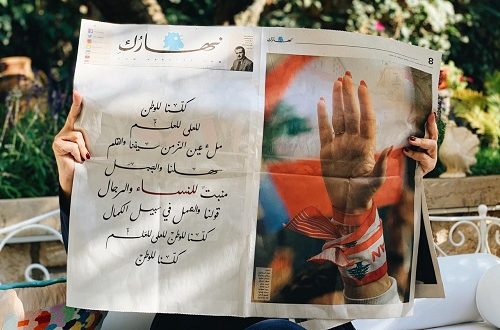 نهارُك
8
كلّنا للوطن
للعلى للعلم
ملء عين الزّمن سيفنا والقلم
سهلنا والجبل
منبت للنساء والرجال
قولنا والعمل في سبيل الكمال
كلّنا للوطن للعلى للعلم
كلّنا للوطن